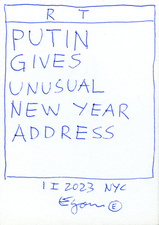 R T
PUTIN
GIVES
UNUSUAL
NEW YEAR
ADDRESS
1 I 2023 NYC
E